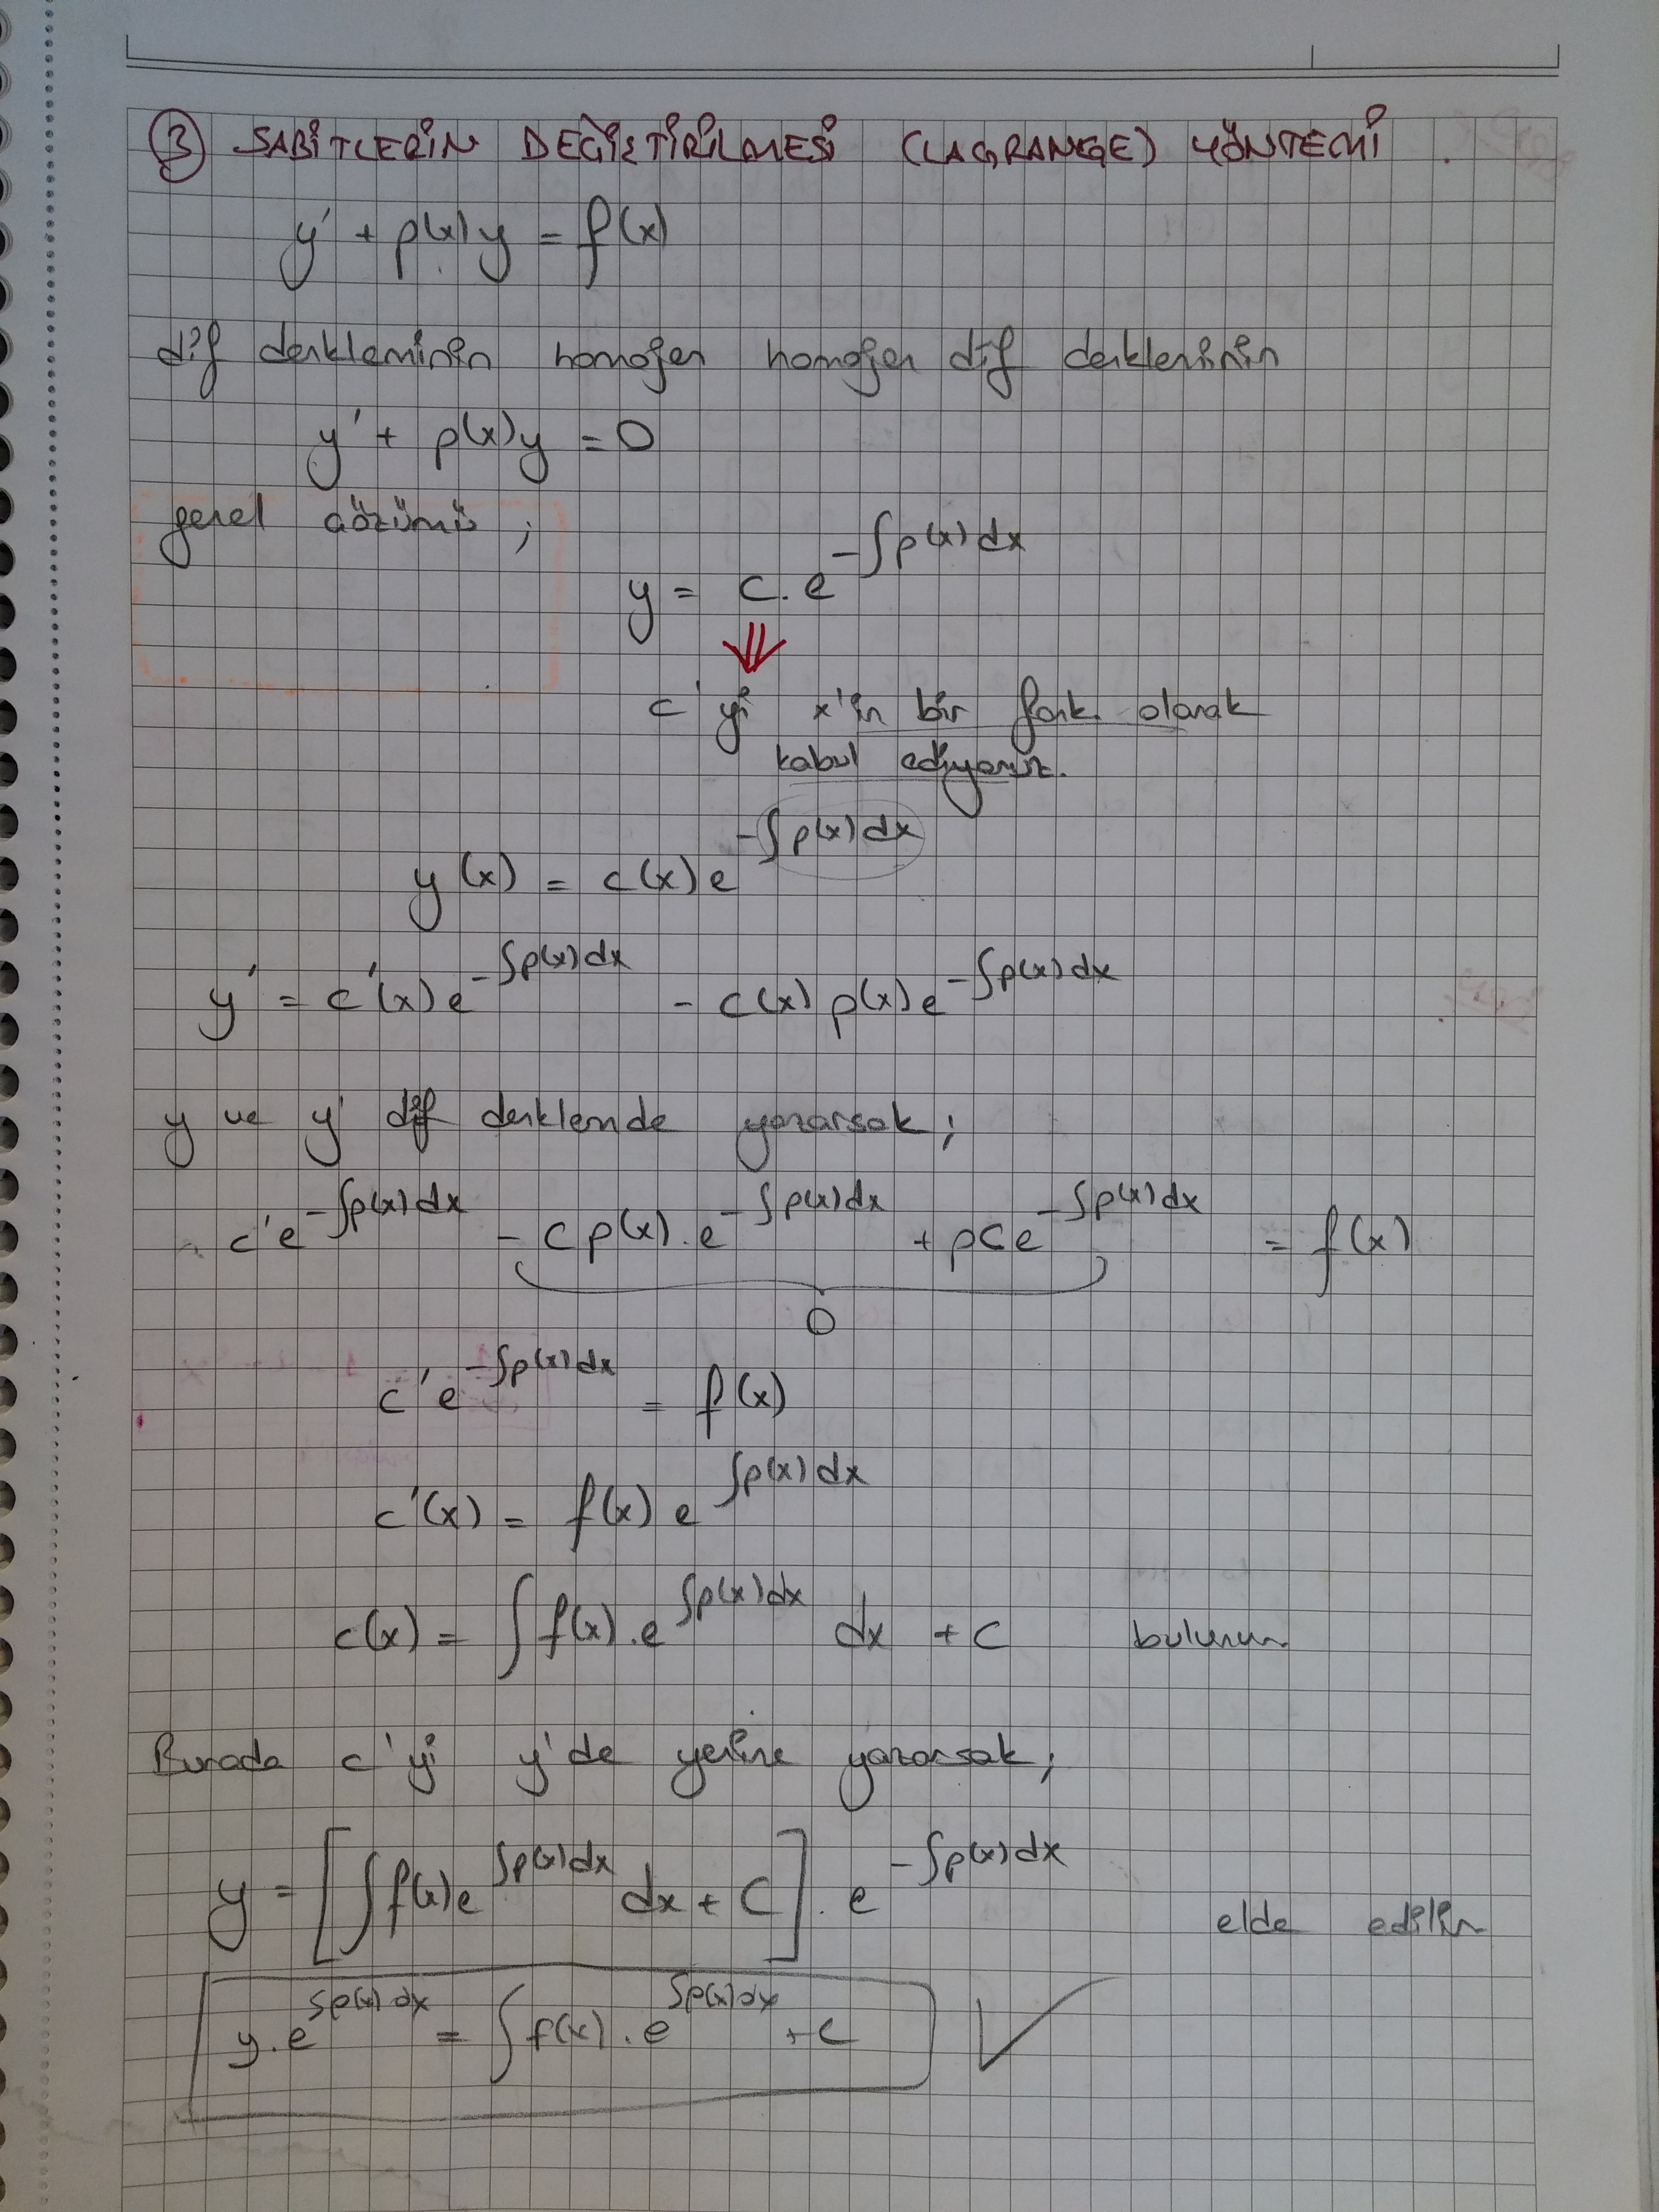 ③ SABİTLERİN DEĞİŞTİRİLMESİ (LAGRANGE) YÖNTEMİ
y' + p(x)y = f(x)
dif denkleminin homojen homojen dif denkleminin
y' + p(x)y = 0
genel çözümü ;
y = c.e^{-∫p(x)dx}
⇓
c'yi x'in bir fonk. olarak
kabul ediyoruz.
y(x) = c(x)e^{-∫p(x)dx}
y' = c'(x)e^{-∫p(x)dx} - c(x)p(x)e^{-∫p(x)dx}
y ve y' dif denklemde yazarsak;
c'e^{-∫p(x)dx} - cp(x).e^{-∫p(x)dx} + pce^{-∫p(x)dx} = f(x)
0
c'e^{-∫p(x)dx} = f(x)
c'(x) = f(x)e^{∫p(x)dx}
c(x) = ∫f(x).e^{∫p(x)dx} dx + c bulunur
Burada c'yi y'de yerine yazarsak;
y = [∫f(x)e^{∫p(x)dx} dx + C].e^{-∫p(x)dx} elde edilir
y.e^{∫p(x)dx} = ∫f(x).e^{∫p(x)dx} + c ✓